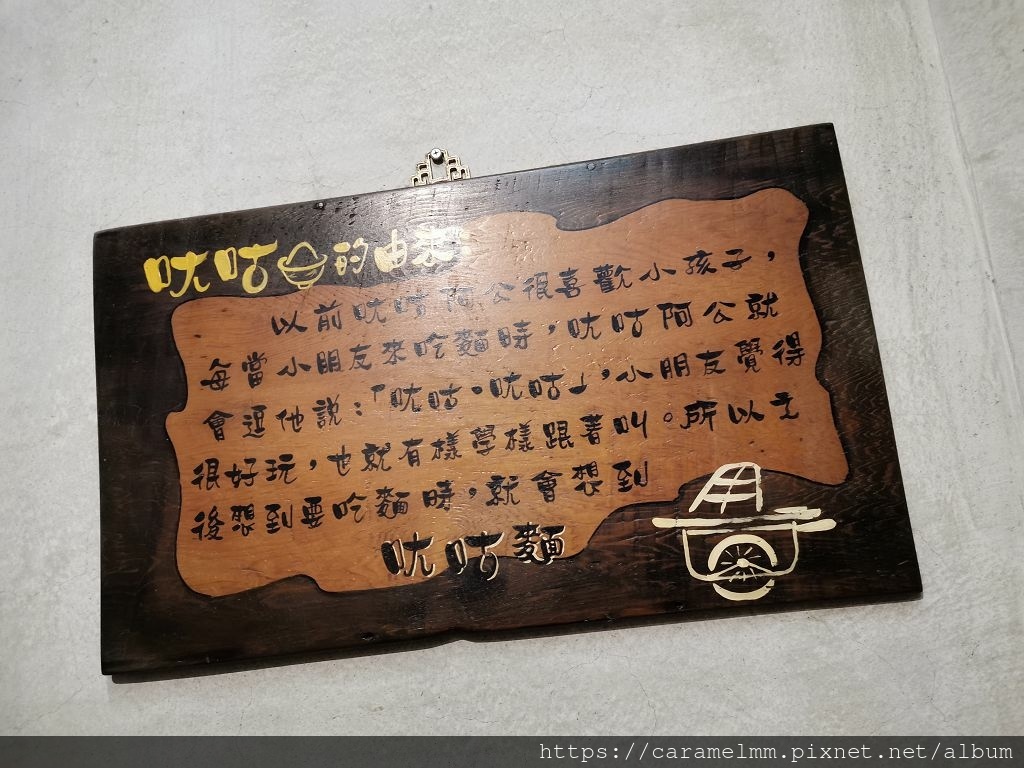 呔咕的由來
以前呔咕阿公很喜歡小孩子，
每當小朋友來吃麵時，呔咕阿公就
會逗他說：「呔咕。呔咕」，小朋友覺得
很好玩，也就有樣學樣跟著叫。所以之
後想到要吃麵時，就會想到
呔咕麵
https://caramelmm.pixnet.net/album